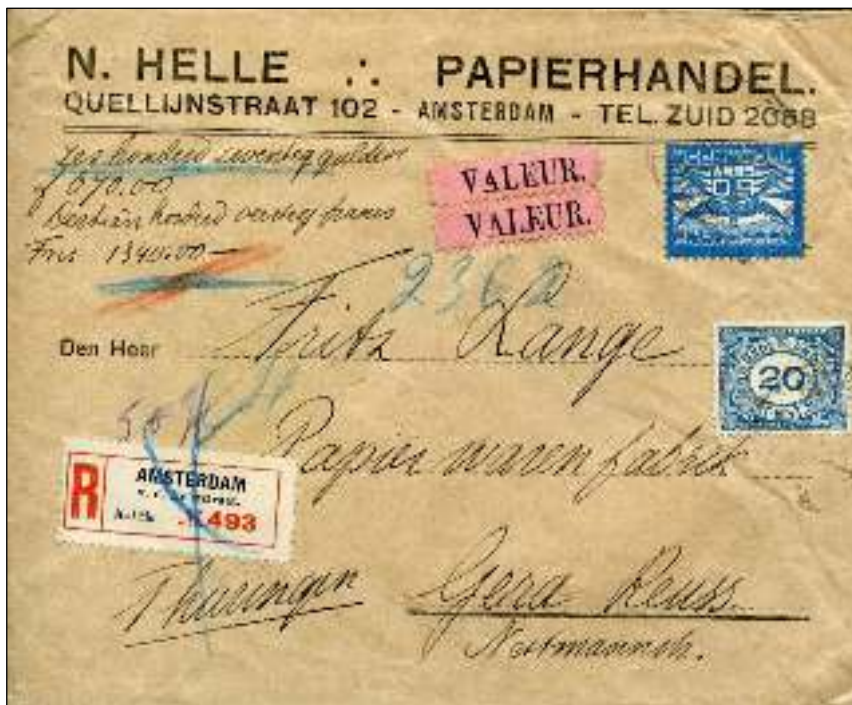 N. HELLE ∴ PAPIERHANDEL.
QUELLIJNSTRAAT 102 - AMSTERDAM - TEL. ZUID 2068
zes honderd zeventig gulden
f 670.00
dertien honderd veertig francs
Frcs 1340.00
VALEUR.
VALEUR.
50
236
Den Heer Fritz Lange
20
Papierwarenfabrik
R AMSTERDAM
493
Thüringen Gera Reuss